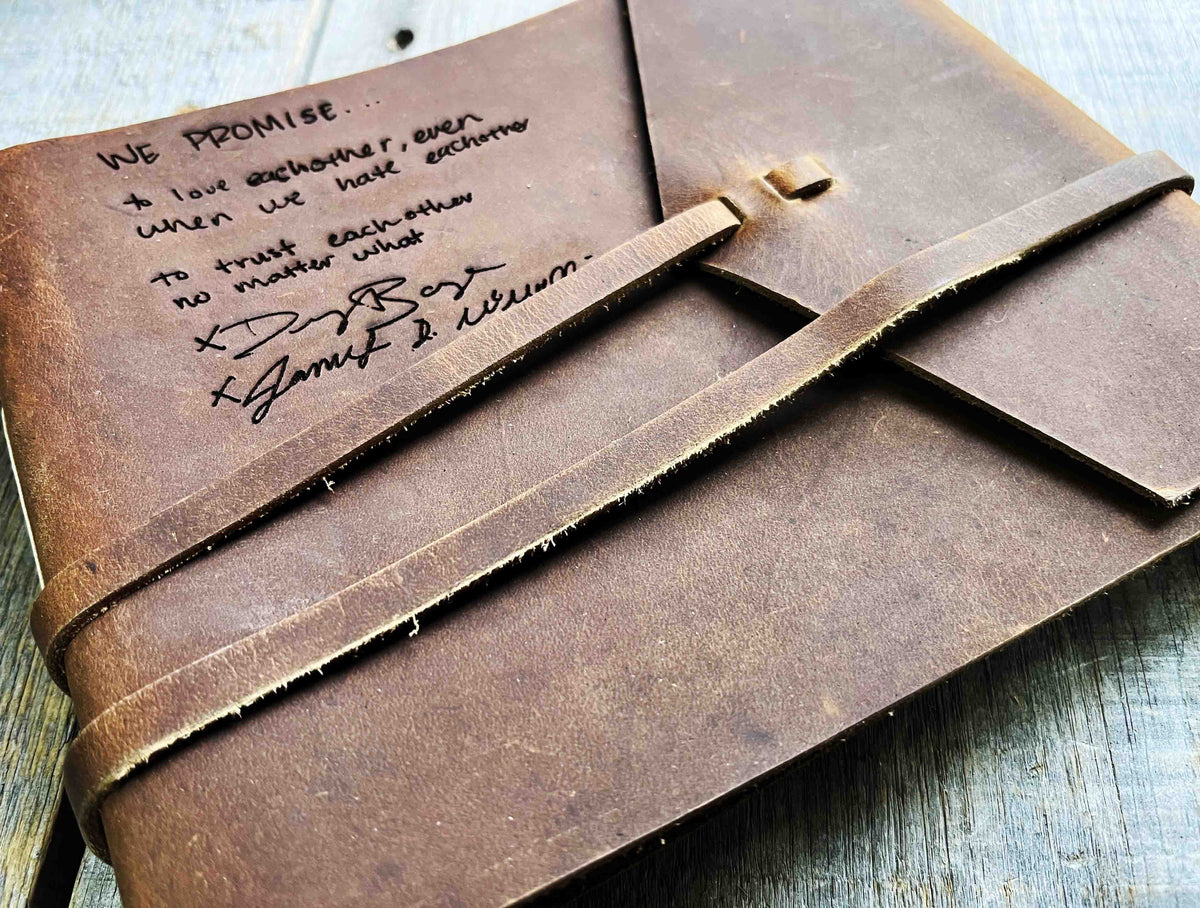 WE PROMISE....
to love eachother, even
when we hate eachother
to trust eachother
no matter what
x
x